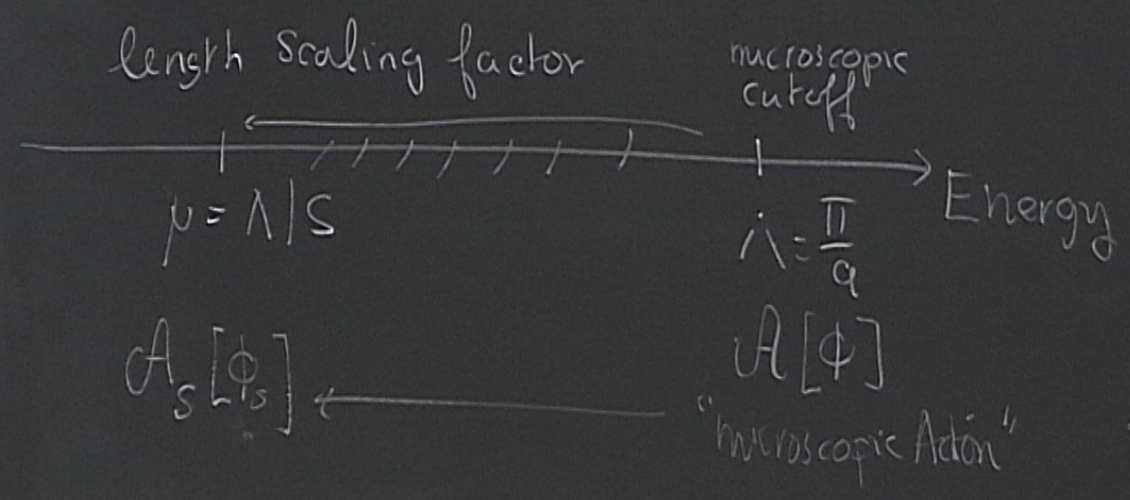 length scaling factor
microscopic
cutoff
Energy
μ = Λ/S
Λ = π/a
𝒜_S[ϕ_S]
𝒜[ϕ]
"microscopic Action"